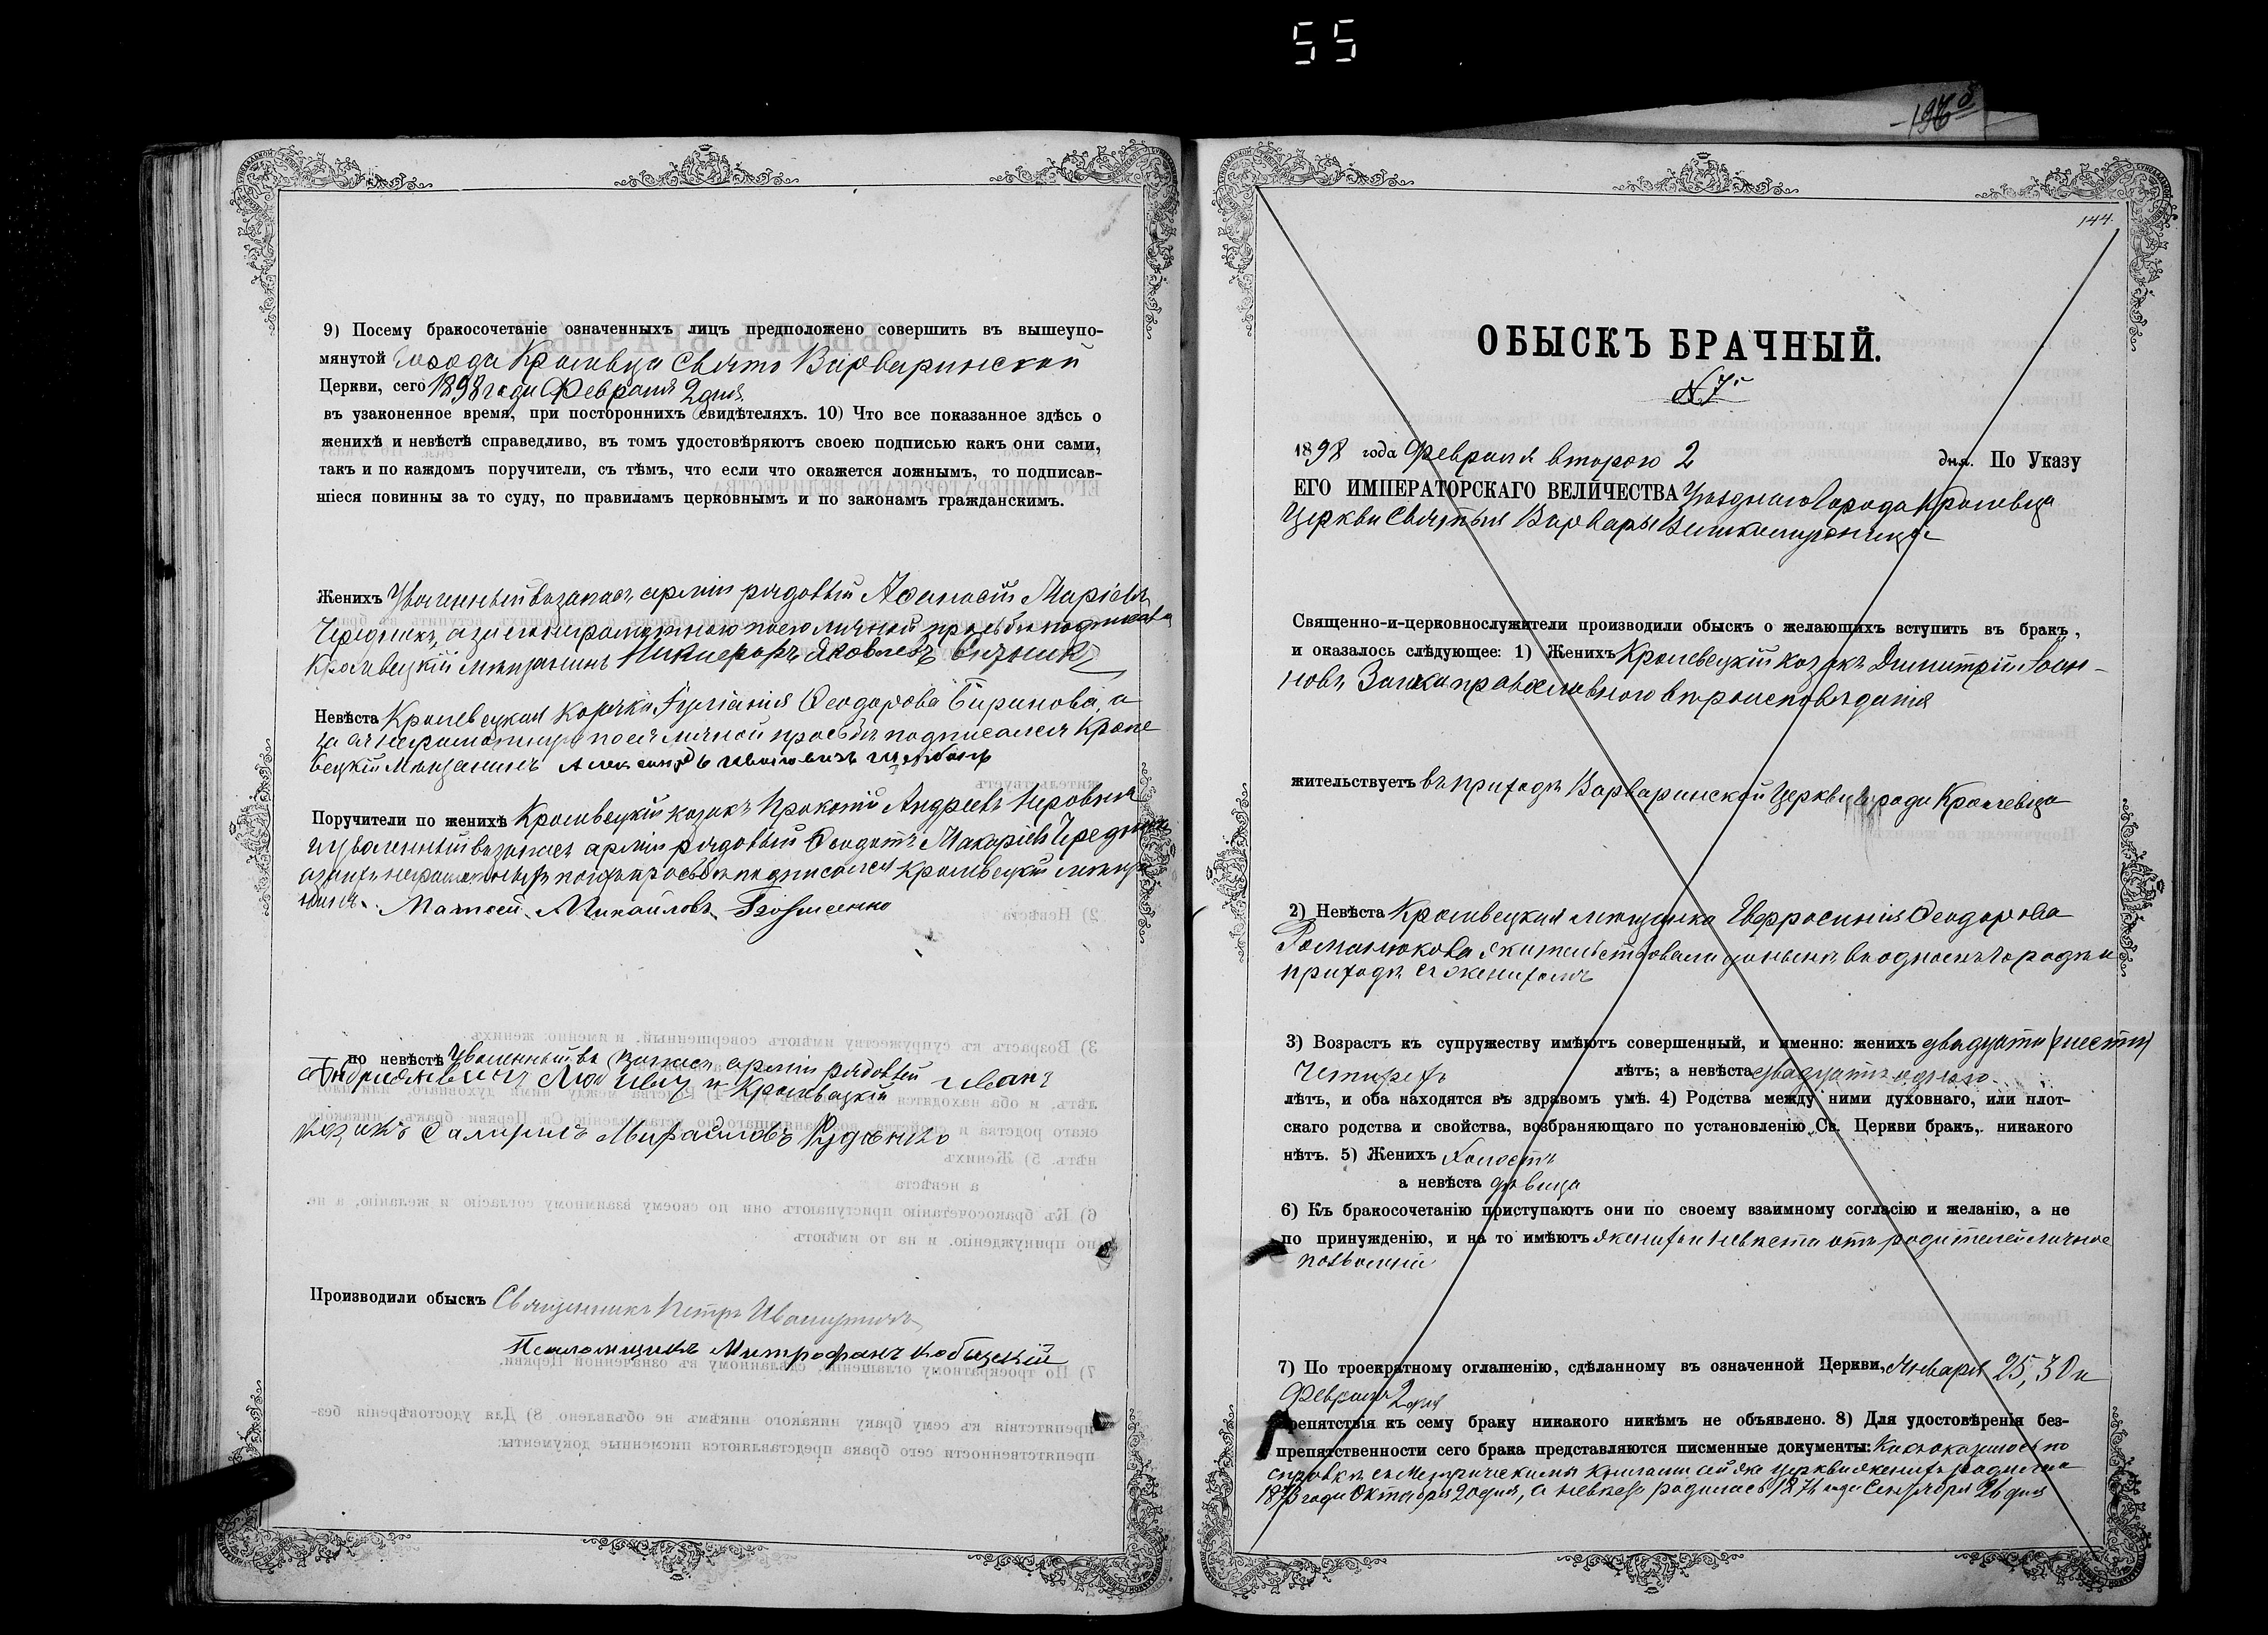 55
9) Посему бракосочетаніе означенныхъ лицъ предположено совершить въ вышеупо-
мянутой города Кролевца Свято Варваринской
Церкви, сего 1898 года Февраля 2 дня
въ узаконенное время, при постороннихъ свидѣтеляхъ. 10) Что все показанное здѣсь о
женихѣ и невѣстѣ справедливо, въ томъ удостовѣряютъ своею подписью какъ они сами,
такъ и по каждомъ поручители, съ тѣмъ, что если что окажется ложнымъ, то подписав-
шіеся повинны за то суду, по правиламъ церковнымъ и по законамъ гражданскимъ.
Женихъ Уволенный въ запасъ арміи рядовый
а за неграмотного по его личной прозьбѣ
Кролевецкій мѣщанинъ Никифоръ Яковлевъ
Невѣста Кролевецкая Ѳеодорова а
за неграмотную по ея личной прозьбѣ подписался Кроле
вецкій Мѣщанинъ Александръ
Поручители по женихѣ Кролевецкій козакъ Прокопій Андреевъ
и уволенный въ запасъ арміи рядовый Ѳеодотъ Макаріевъ
а за нихъ неграмотныхъ по ихъ прозьбѣ подписался Кролевецкій мѣща
нинъ Матвей Михайловъ
по невѣстѣ Уволенный въ запасъ арміи рядовый Иванъ
и Кролевецкій
козакъ
Производили обыскъ Священникъ Петръ
Псаломщикъ Митрофанъ
-196
144
ОБЫСКЪ БРАЧНЫЙ.
№ 7
1898 года Февраля второго 2 дня. По Указу
ЕГО ИМПЕРАТОРСКАГО ВЕЛИЧЕСТВА Уѣзднаго Города Кролевца
Церкви Святыя Варвары Великомученицы
Священно-и-церковнослужители производили обыскъ о желающихъ вступить въ бракъ,
и оказалось слѣдующее: 1) Женихъ Кролевецкій козакъ Димитрій Іоан-
новъ Заика православного вѣроисповѣданія
жительствуетъ въ приходѣ Варваринской Церкви города Кролевца
2) Невѣста Кролевецкая мѣщанка Евфросинія Ѳеодорова
Романюкова жительствовала донынѣ въ одномъ городѣ и
приходѣ съ женихомъ
3) Возрастъ къ супружеству имѣютъ совершенный, и именно: женихъ двадцати (шести)
Четырехъ лѣтъ; а невѣста двадцати одного
лѣтъ, и оба находятся въ здравомъ умѣ. 4) Родства между ними духовнаго, или плот-
скаго родства и свойства, возбраняющаго по установленію Св. Церкви бракъ, никакого
нѣтъ. 5) Женихъ холостъ
а невѣста дѣвица
6) Къ бракосочетанію приступаютъ они по своему взаимному согласію и желанію, а не
по принужденію, и на то имѣютъ женихъ и невѣста отъ родителей личное
позволеніе
7) По троекратному оглашенію, сдѣланному въ означенной Церкви, Января 25, 30 и
Февраля 2 дня
препятствія къ сему браку никакого никѣмъ не объявлено. 8) Для удостовѣренія без-
препятственности сего брака представляются писменные документы: Какъ оказалось по
справкѣ съ Метрическими Книгами сей же церкви женихъ родился
1873 года Октября 20 дня, а невѣста родилась 1876 года Сентября 26 дня